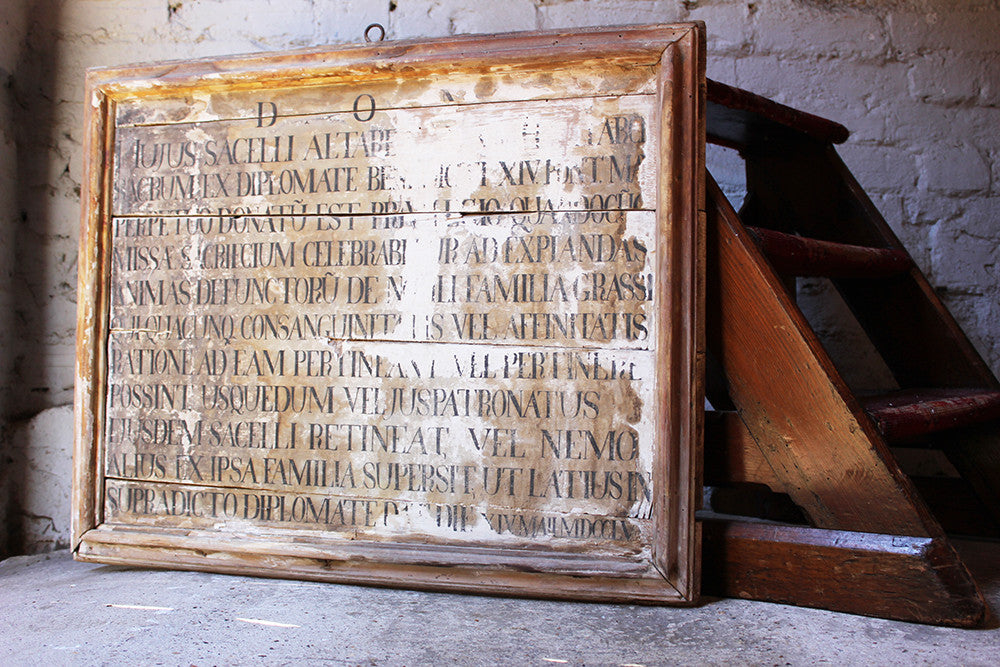 D O
HUJUS SACELLI ALTARE
SACRUM EX DIPLOMATE XIV PONT
PERPETUO DONATŨ EST
MISSÆ SACRIFICIUM CELEBRABI AD EXPIANDAS
ANIMAS DEFUNCTORŨ DE FAMILIA GRASSI
CONSANGUINIT IS VEL AFFINITATIS
RATIONE AD EAM PERTINEANT VEL PERTINERE
POSSINT USQUEDUM VEL JUSPATRONATUS
EJUSDEM SACELLI RETINEAT, VEL NEMO
ALIUS EX IPSA FAMILIA SUPERSIT, UT LATIUS IN
SUPRADICTO DIPLOMATE